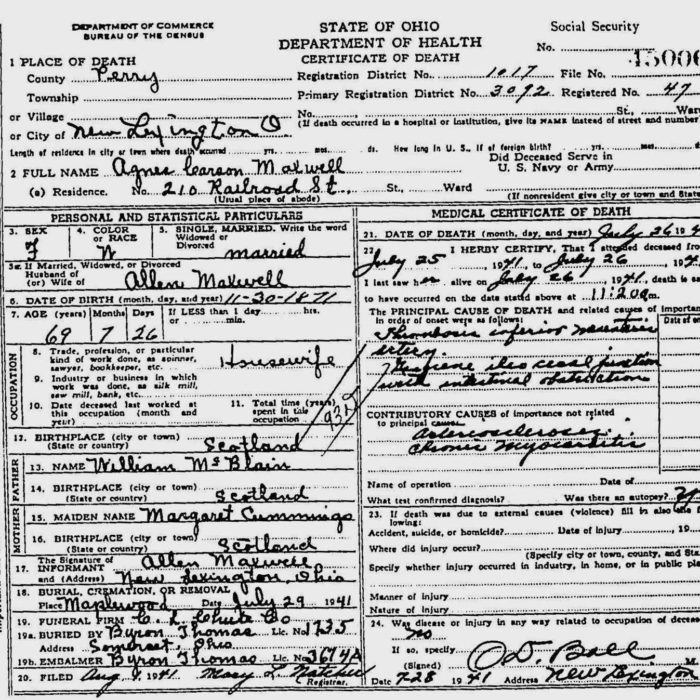 DEPARTMENT OF COMMERCE
BUREAU OF THE CENSUS
STATE OF OHIO
DEPARTMENT OF HEALTH
CERTIFICATE OF DEATH
Social Security
No.
1 PLACE OF DEATH
County Perry
Registration District No. 1017 File No. 45006
Township
Primary Registration District No. 3092 Registered No. 47
or Village
No. St., Ward
or City of New Lexington O
(If death occurred in a hospital or institution, give its NAME instead of street and number
Length of residence in city or town where death occurred yrs. mos. ds. How long in U. S. if of foreign birth? yrs. mos.
2 FULL NAME Agnes Carson Maxwell
Did Deceased Serve in
U. S. Navy or Army
(a) Residence. No. 210 Railroad St., St., Ward
(Usual place of abode)
(If nonresident give city or town and State
PERSONAL AND STATISTICAL PARTICULARS
3. SEX
F
4. COLOR
or RACE
W
5. SINGLE, MARRIED. Write the word
Widowed or
Divorced
married
5a. If Married, Widowed, or Divorced
Husband of
(or) Wife of Allen Maxwell
6. DATE OF BIRTH (month, day, and year) 11-30-1871
7. AGE (years) Months Days If LESS than 1 day hrs.
or min.
69 7 26
OCCUPATION
8. Trade, profession, or particular
kind of work done, as spinner,
sawyer, bookkeeper, etc. Housewife
9. Industry or business in which
work was done, as silk mill,
saw mill, bank, etc.
10. Date deceased last worked at
this occupation (month and
year)
11. Total time (years)
spent in this
occupation
12. BIRTHPLACE (city or town)
(State or country) Scotland
FATHER
13. NAME William McBlain
14. BIRTHPLACE (city or town)
(State or country) Scotland
MOTHER
15. MAIDEN NAME Margaret Cummings
16. BIRTHPLACE (city or town)
(State or country) Scotland
17. The Signature of
INFORMANT Allen Maxwell
and (Address) New Lexington, Ohio
18. BURIAL, CREMATION, OR REMOVAL
Place Maplewood Date July 29 1941
19. FUNERAL FIRM C. L. Chute Co
19a. BURIED BY Byron Thomas Lic. No. 1735
Address Somerset, Ohio
19b. EMBALMER Byron Thomas Lic. No. 3674A
20. FILED Aug 1 1941 Mary L
Registrar.
MEDICAL CERTIFICATE OF DEATH
21. DATE OF DEATH (month, day, and year) July 26 194
22. I HERBY CERTIFY, That I attended deceased from
July 25, 1941 to July 26, 194
I last saw her alive on July 26 1941, death is sa
to have occurred on the date stated above at 11:20 m.
THE PRINCIPAL CAUSE OF DEATH and related causes of importan
in order of onset were as follows:
Date of on
Thrombosis inferior mesenteric
artery.
Gangrene ileo cecal junction
with intestinal obstruction
CONTRIBUTORY CAUSES of importance not related
to principal cause:
Arteriosclerosis.
Chronic Myocarditis
Name of operation Date of
What test confirmed diagnosis? Was there an autopsy?
23. If death was due to external causes (violence) fill in also the fol
lowing:
Accident, suicide, or homicide? Date of injury 19
Where did injury occur?
(Specify city or town, county, and Sta
Specify whether injury occurred in industry, in home, or in public pla
Manner of injury
Nature of injury
24. Was disease or injury in any way related to occupation of deceas
no
If so, specify
(Signed) O.D. Ball
Date 7-28 1941 Address New Lexington